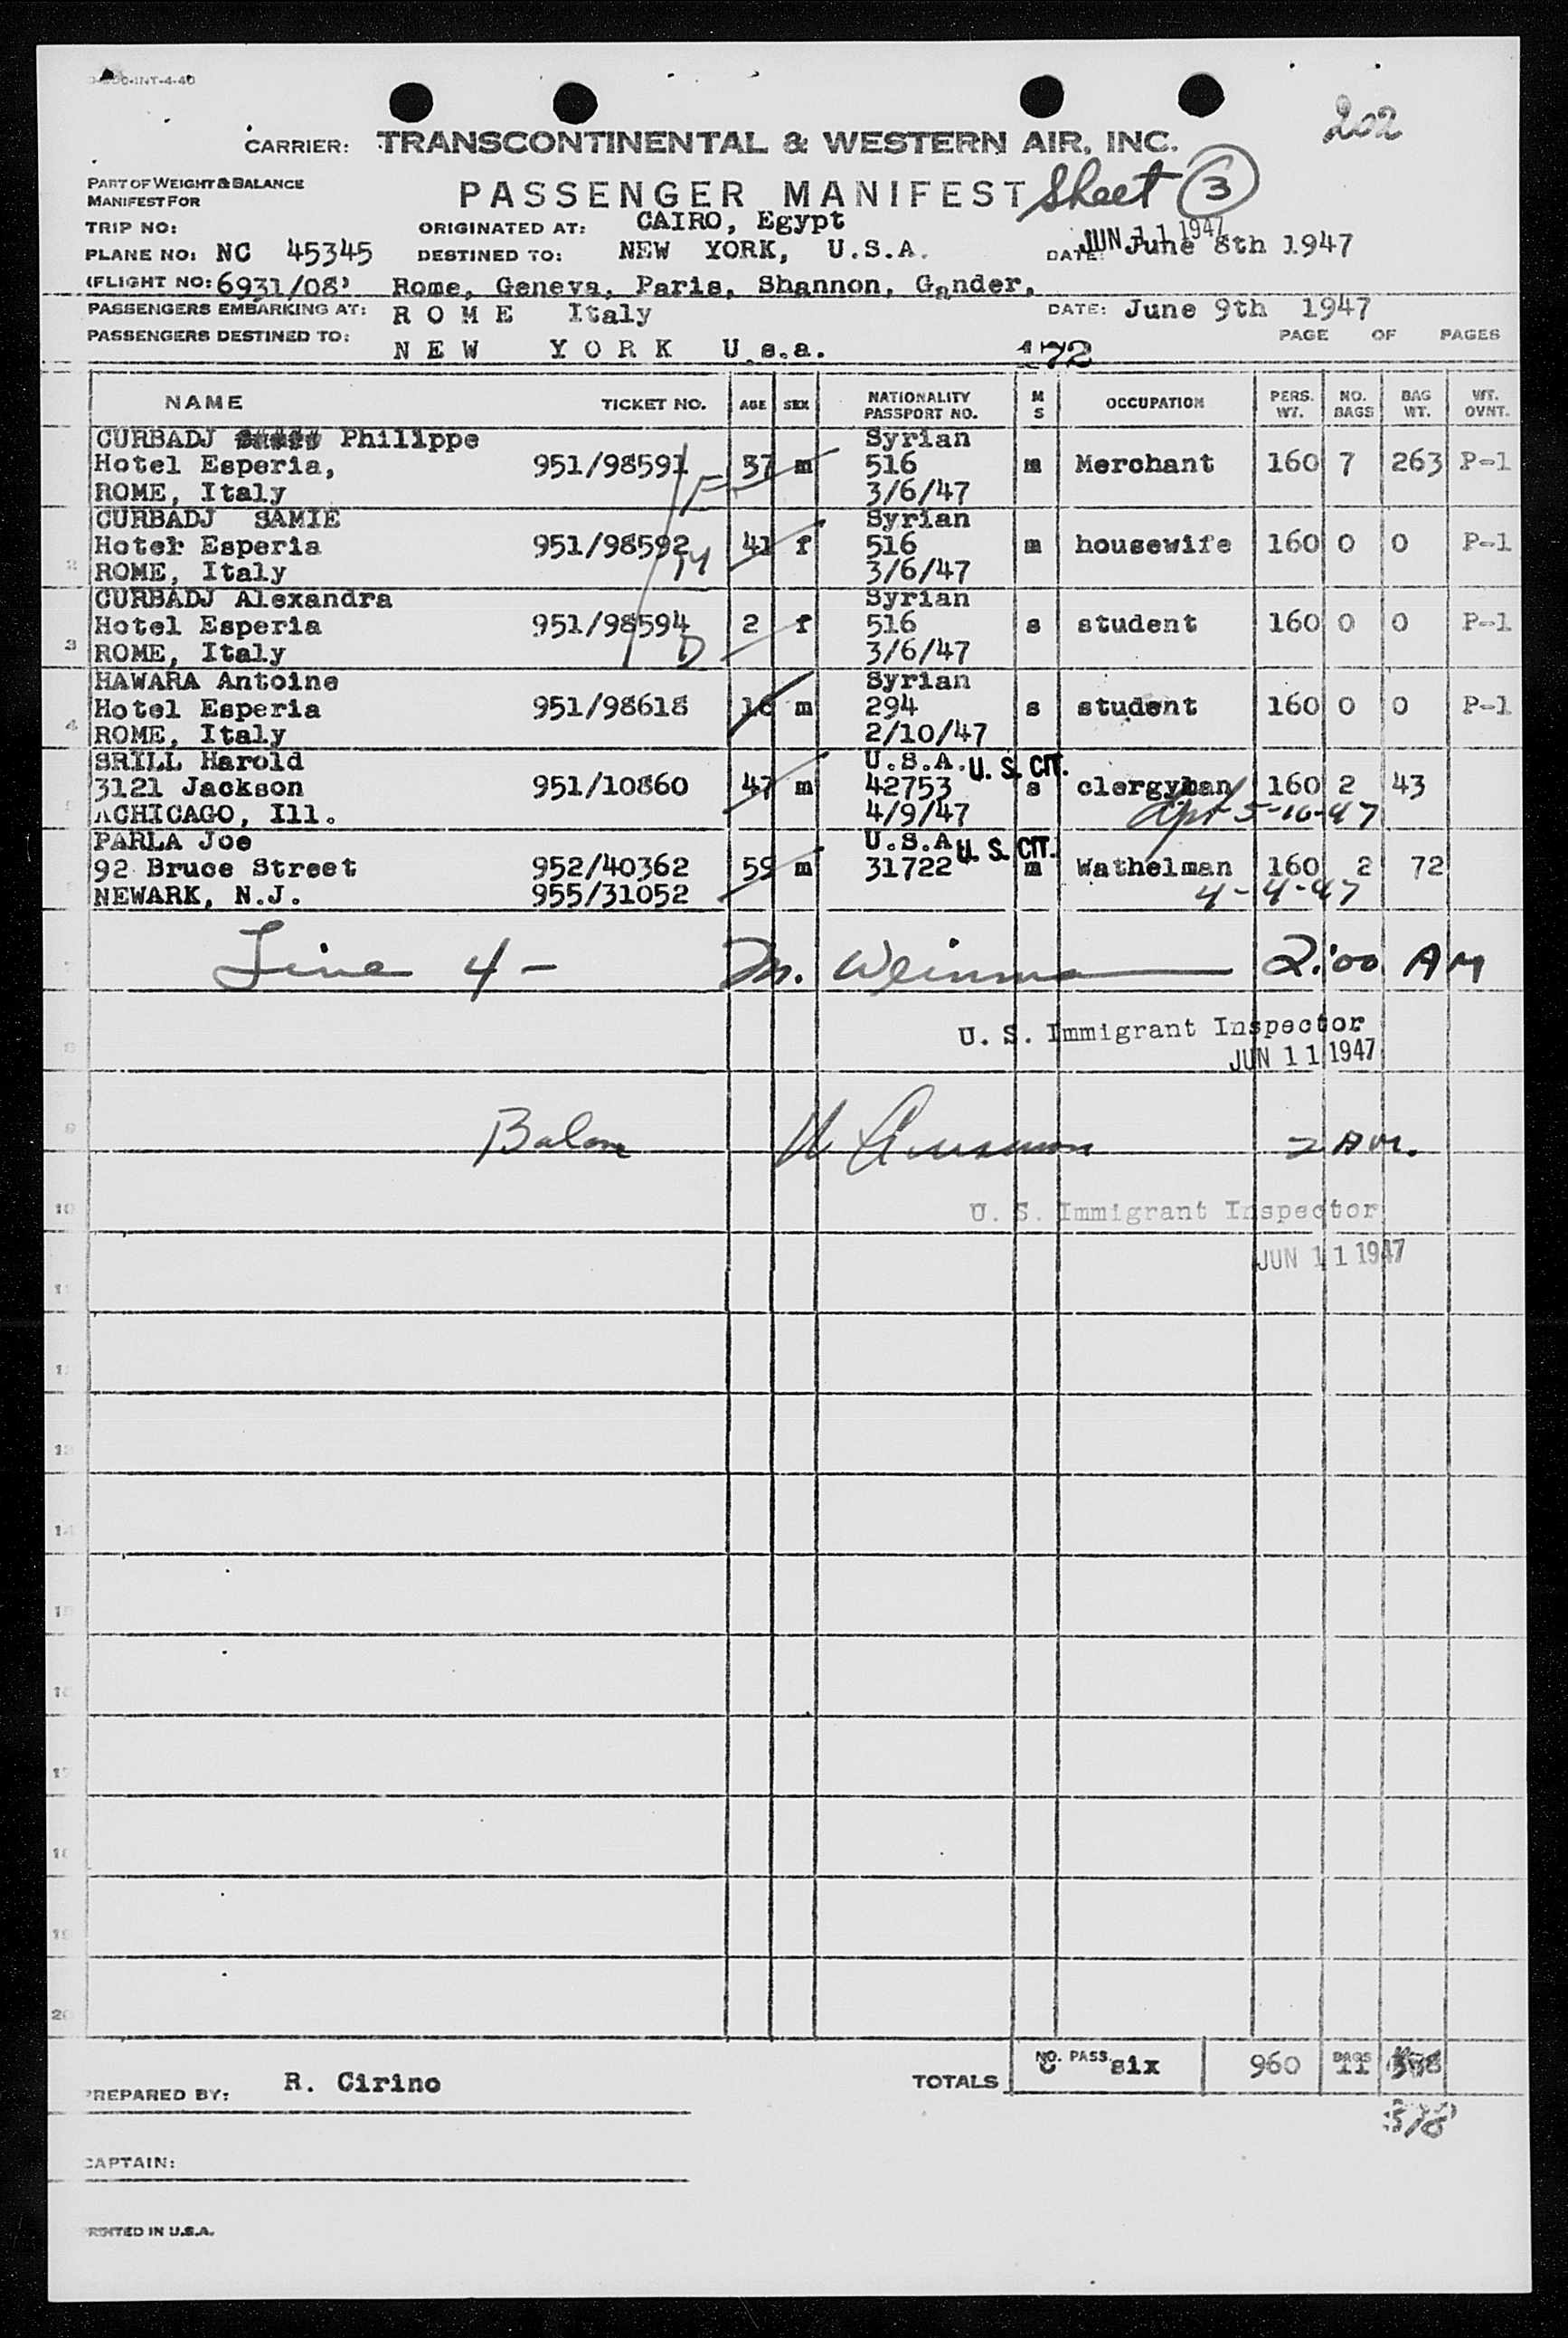 202
CARRIER: TRANSCONTINENTAL & WESTERN AIR, INC.
PART OF WEIGHT & BALANCE
MANIFEST FOR
PASSENGER MANIFEST Sheet 3
TRIP NO: ORIGINATED AT: CAIRO, Egypt JUN 11 1947
PLANE NO: NC 45345 DESTINED TO: NEW YORK, U.S.A. DATE: June 8th 1947
(FLIGHT NO: 6931/08) Rome, Geneva, Paris, Shannon, Gander,
PASSENGERS EMBARKING AT: ROME Italy DATE: June 9th 1947
PASSENGERS DESTINED TO: NEW YORK U.s.a. 72 PAGE OF PAGES
NAME TICKET NO. AGE SEX NATIONALITY PASSPORT NO. M S OCCUPATION PERS. WT. NO. BAGS BAG WT. WT. OVNT.
CURBADJ Philippe Syrian
Hotel Esperia, 951/98591 37 m 516 m Merchant 160 7 263 P-1
ROME, Italy F 3/6/47
CURBADJ SAMIE Syrian
2 Hotel Esperia 951/98592 41 f 516 m housewife 160 0 0 P-1
ROME, Italy M 3/6/47
CURBADJ Alexandra Syrian
3 Hotel Esperia 951/98594 2 f 516 s student 160 0 0 P-1
ROME, Italy D 3/6/47
HAWARA Antoine Syrian
4 Hotel Esperia 951/98618 18 m 294 s student 160 0 0 P-1
ROME, Italy 2/10/47
SRILL Harold U.S.A. U. S. CIT.
5 3121 Jackson 951/10860 47 m 42753 s clergyman 160 2 43
CHICAGO, Ill. 4/9/47 5-16-47
PARLA Joe U.S.A U. S. CIT.
92 Bruce Street 952/40362 59 m 31722 m Wathelman 160 2 72
NEWARK, N.J. 955/31052 4-4-47
Line 4 - M. Weinman 2:00 AM
U. S. Immigrant Inspector
JUN 11 1947
9 2 AM.
10 U. S. Immigrant Inspector
JUN 11 1947
11
12
13
14
15
16
17
18
19
20
TOTALS NO. PASS. six 960 BAGS 11
PREPARED BY: R. Cirino
378
CAPTAIN:
PRINTED IN U.S.A.